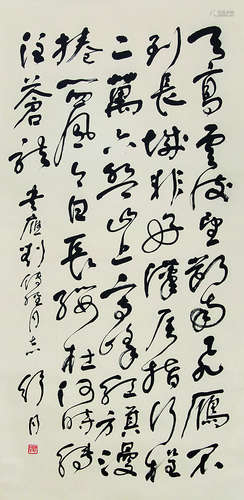 天高雲淡望斷南飛雁不
到長城非好漢屈指行程
二萬六盤山上高峰紅旗漫
捲西風今日長纓在手何時縛
住蒼龍 書應劉同志 舒同